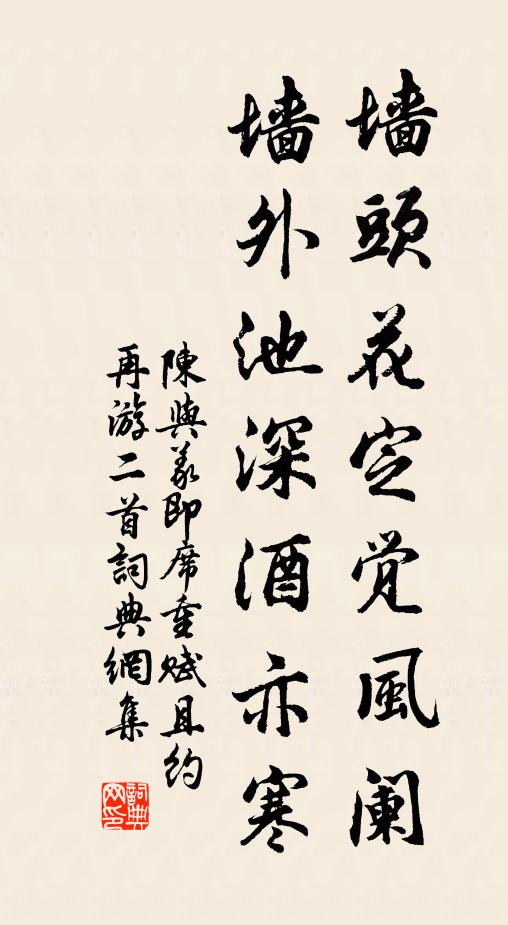 墙頭花定觉風阑
墙外池深酒亦寒
陳與義即席重赋且约
再游二首詞典網集
詞典
网印